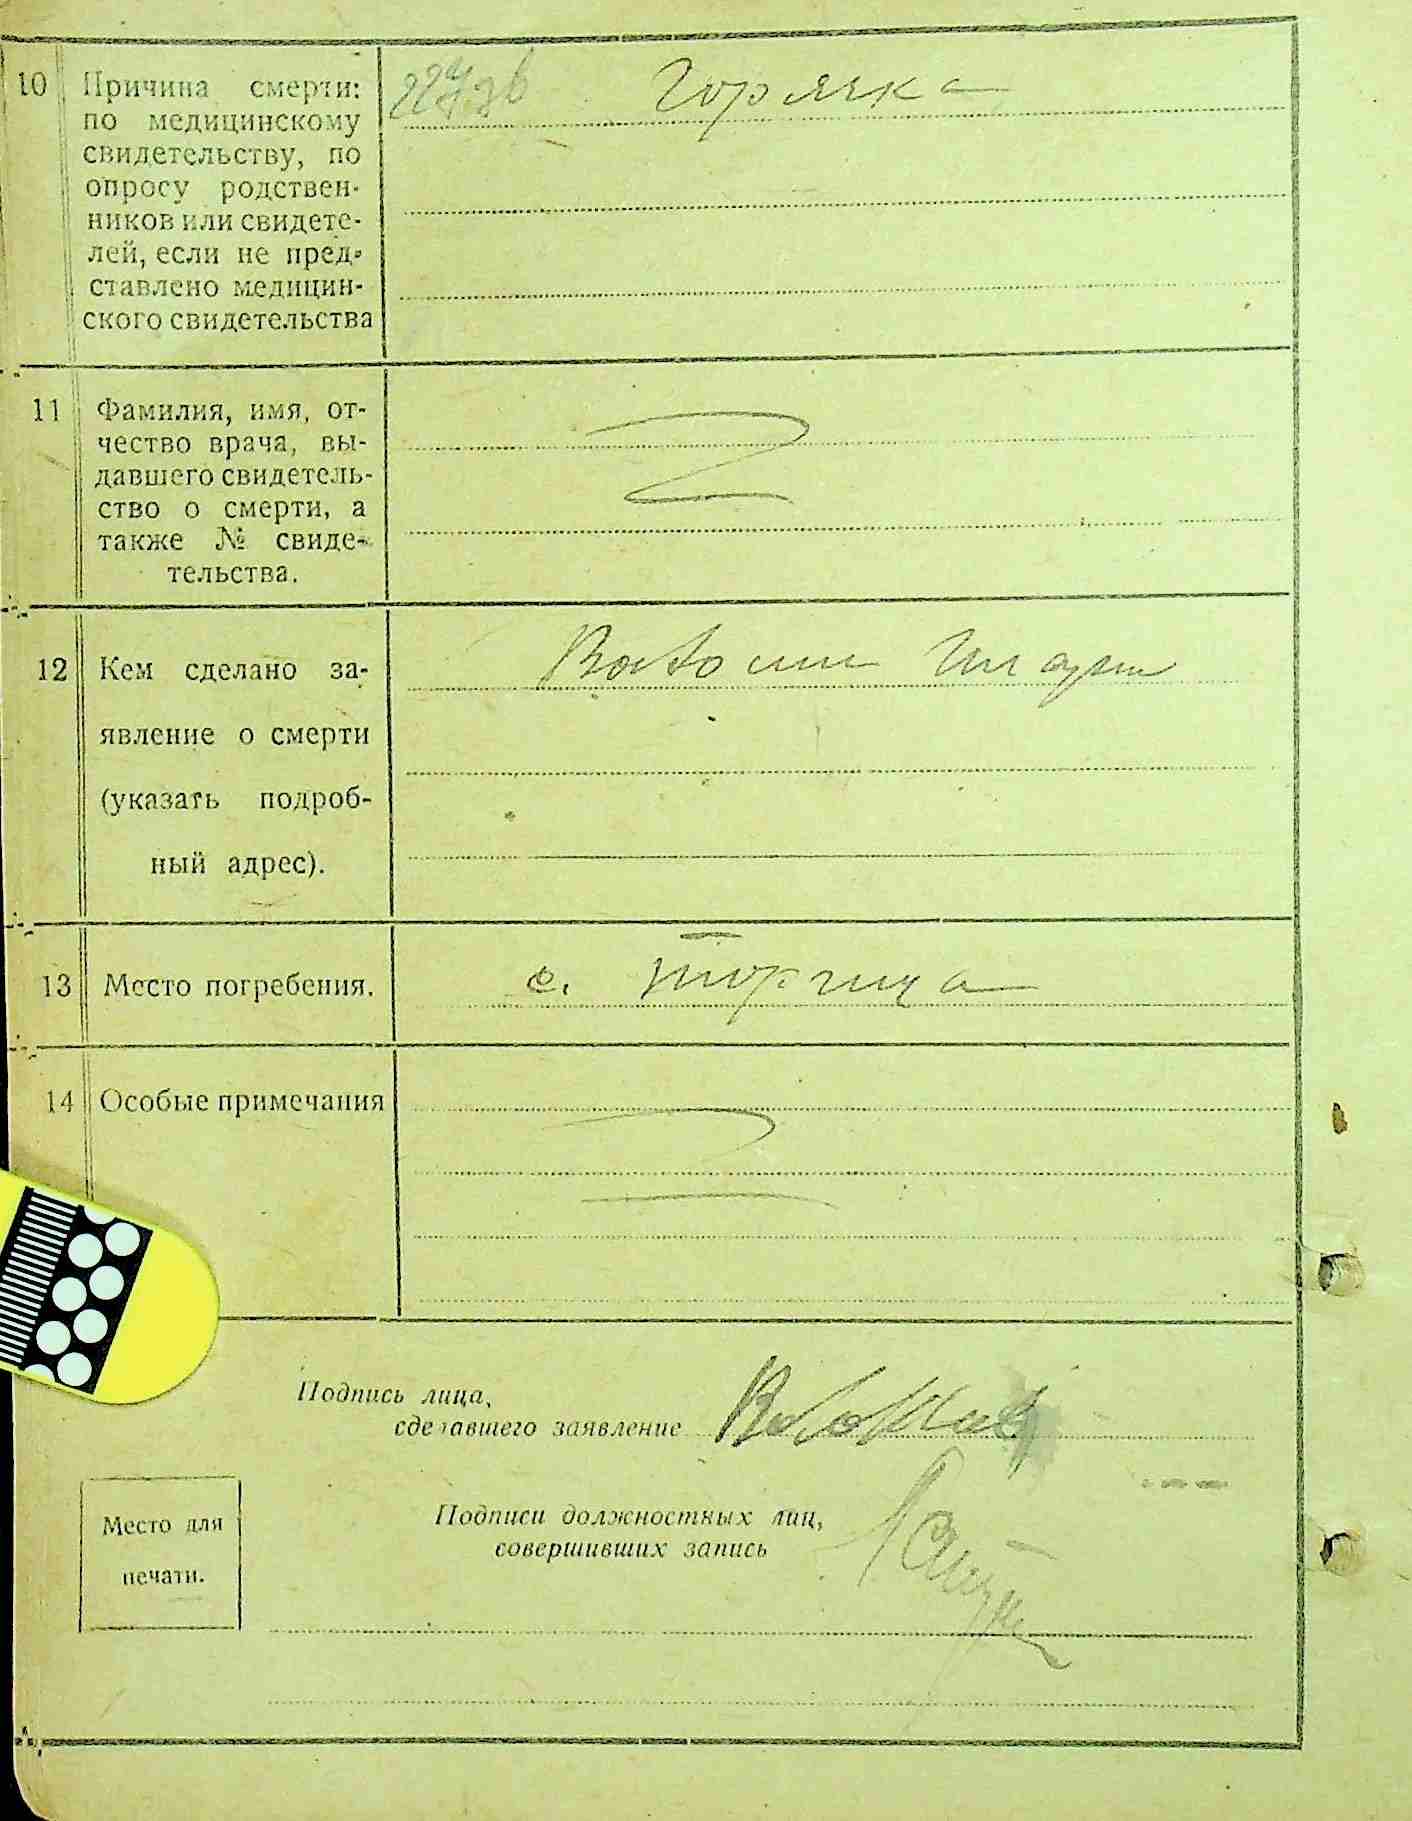 10 Причина смерти: Горячка
по медицинскому
свидетельству, по
опросу родствен-
ников или свидете-
лей, если не пред-
ставлено медицин-
ского свидетельства
11 Фамилия, имя, от-
чество врача, вы-
давшего свидетель-
ство о смерти, а
также № свиде-
тельства.
12 Кем сделано за-
явление о смерти
(указать подроб-
ный адрес).
13 Место погребения. с.
14 Особые примечания
Подпись лица,
сделавшего заявление
Подписи должностных лиц,
совершивших запись
Место для
печати.